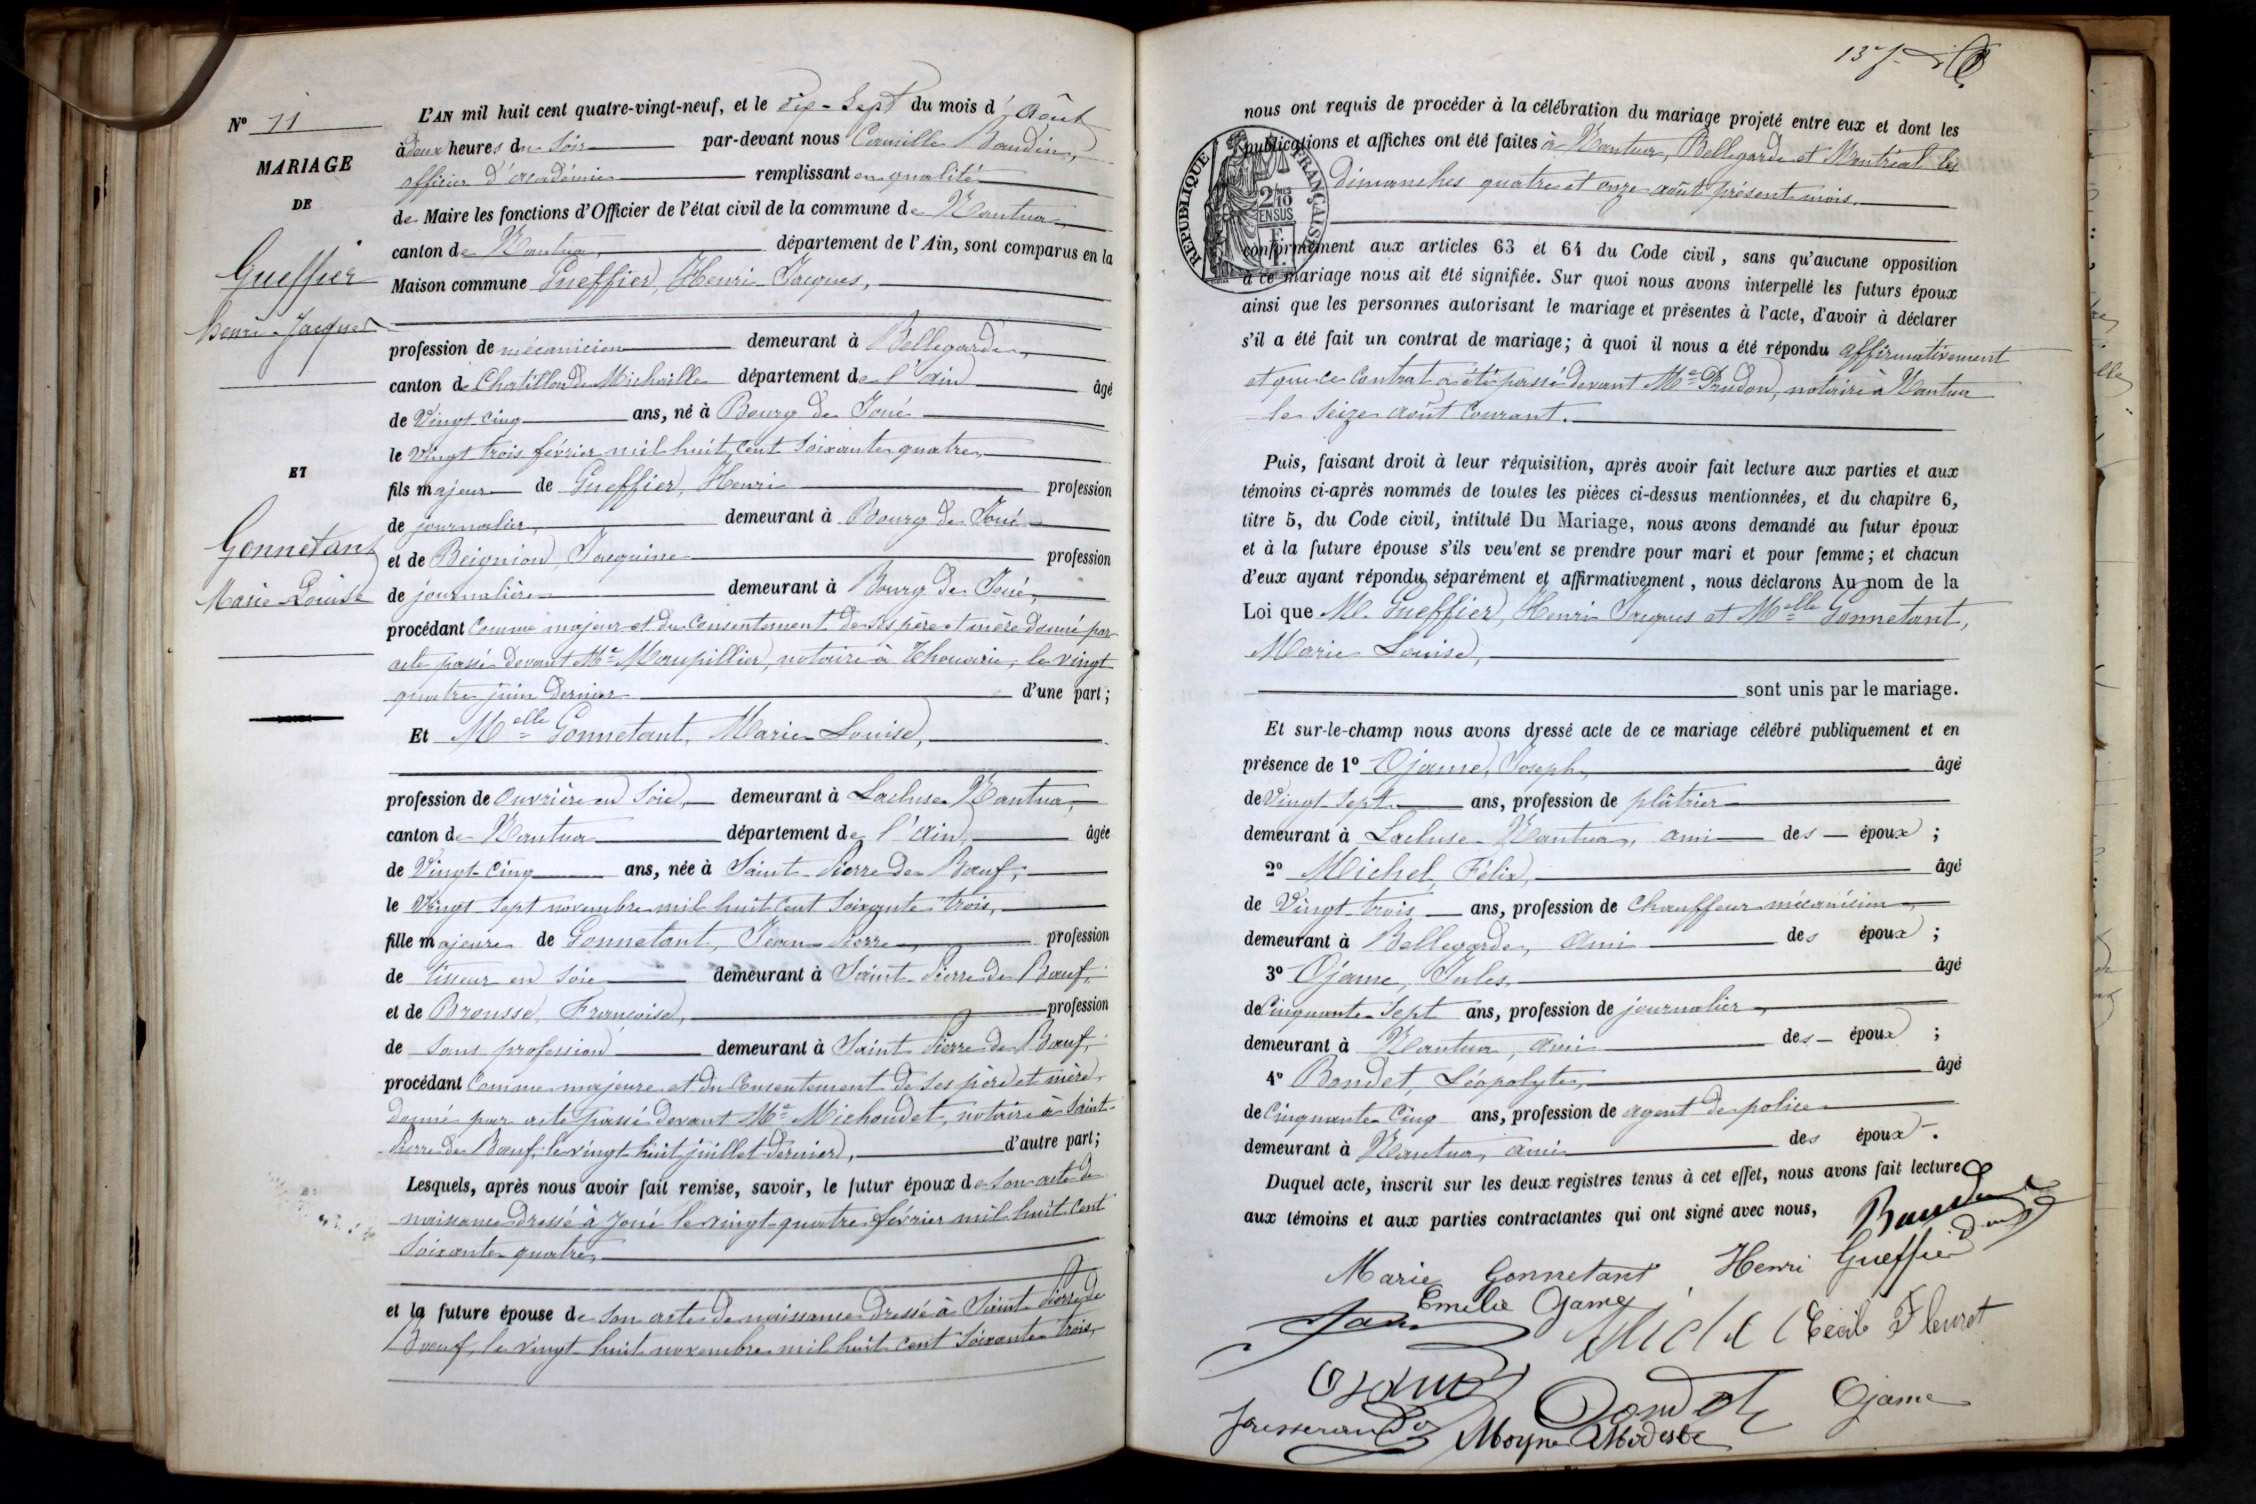 N° 11
MARIAGE
DE
Gueffier
henri-Jacques
ET
Gonnetant
Marie Louise
L'AN mil huit cent quatre-vingt-neuf, et le dix-sept du mois d'Août
à deux heures du Soir par-devant nous Camille Baudin,
officier d'académie remplissant en qualité
de Maire les fonctions d'Officier de l'état civil de la commune de Nantua,
canton de Nantua, département de l'Ain, sont comparus en la
Maison commune Gueffier, Henri Jacques,
profession de mécanicien demeurant à Bellegarde,
canton de Chatillon de Michaille département de l'Ain âgé
de Vingt cinq ans, né à Bourg de Joué
le vingt trois février mil huit cent soixante quatre,
fils majeur de Gueffier, Henri profession
de journalier, demeurant à Bourg de Joué
et de Beignion, Jacquine profession
de journalière demeurant à Bourg de Joué,
procédant comme majeur et du consentement de ses père et mère donné par
acte passé devant Me Maupillier, notaire à Thouarcé, le vingt
quatre juin dernier d'une part;
Et Melle Gonnetant, Marie Louise,
profession de ouvrière en soie, demeurant à Lacluse Nantua,
canton de Nantua département de l'Ain, âgée
de Vingt cinq ans, née à Saint Pierre de Bœuf,
le Vingt sept novembre mil huit cent soixante trois,
fille majeure de Gonnetant, Jean Pierre, profession
de tisseur en soie demeurant à Saint Pierre de Bœuf,
et de Brousse, Françoise, profession
de sans profession demeurant à Saint Pierre de Bœuf,
procédant comme majeure et du consentement de ses père et mère
donné par acte passé devant Me Michoudet, notaire à Saint-
Pierre de Bœuf, le vingt huit juillet dernier, d'autre part;
Lesquels, après nous avoir fait remise, savoir, le futur époux de son acte de
naissance dressé à Joué le vingt-quatre février mil huit cent
soixante quatre,
et la future épouse de son acte de naissance dressé à Saint Pierre de
Bœuf, le vingt huit novembre mil huit cent soixante trois,
137
nous ont requis de procéder à la célébration du mariage projeté entre eux et dont les
publications et affiches ont été faites à Nantua, Bellegarde et Montréal les
dimanches quatre et onze août présent mois.
RÉPUBLIQUE FRANÇAISE
2/10 EN SUS
conformément aux articles 63 et 64 du Code civil, sans qu'aucune opposition
à ce mariage nous ait été signifiée. Sur quoi nous avons interpellé les futurs époux
ainsi que les personnes autorisant le mariage et présentes à l'acte, d'avoir à déclarer
s'il a été fait un contrat de mariage; à quoi il nous a été répondu affirmativement
et que ce contrat a été passé devant Me Prudon, notaire à Nantua
le seize août courant.
Puis, faisant droit à leur réquisition, après avoir fait lecture aux parties et aux
témoins ci-après nommés de toutes les pièces ci-dessus mentionnées, et du chapitre 6,
titre 5, du Code civil, intitulé Du Mariage, nous avons demandé au futur époux
et à la future épouse s'ils veulent se prendre pour mari et pour femme; et chacun
d'eux ayant répondu séparément et affirmativement, nous déclarons Au nom de la
Loi que M. Gueffier, Henri Jacques et Melle Gonnetant,
Marie Louise,
sont unis par le mariage.
Et sur-le-champ nous avons dressé acte de ce mariage célébré publiquement et en
présence de 1° Ojame, Joseph, âgé
de Vingt sept ans, profession de plâtrier
demeurant à Lacluse Nantua, ami des époux;
2° Michel, Félix, âgé
de Vingt trois ans, profession de chauffeur mécanicien,
demeurant à Bellegarde, ami des époux;
3° Ojame, Jules, âgé
de Cinquante-sept ans, profession de journalier,
demeurant à Nantua, ami des époux;
4° Bondet, Léopolyte, âgé
de cinquante cinq ans, profession de agent de police
demeurant à Nantua, ami des époux.
Duquel acte, inscrit sur les deux registres tenus à cet effet, nous avons fait lecture
aux témoins et aux parties contractantes qui ont signé avec nous, Baudin
Marie Gonnetant Henri Gueffier
Emélie Ojame
Michel Cécile Fleuret
Ojame Bondet Ojame
Josserand Moyne Modeste